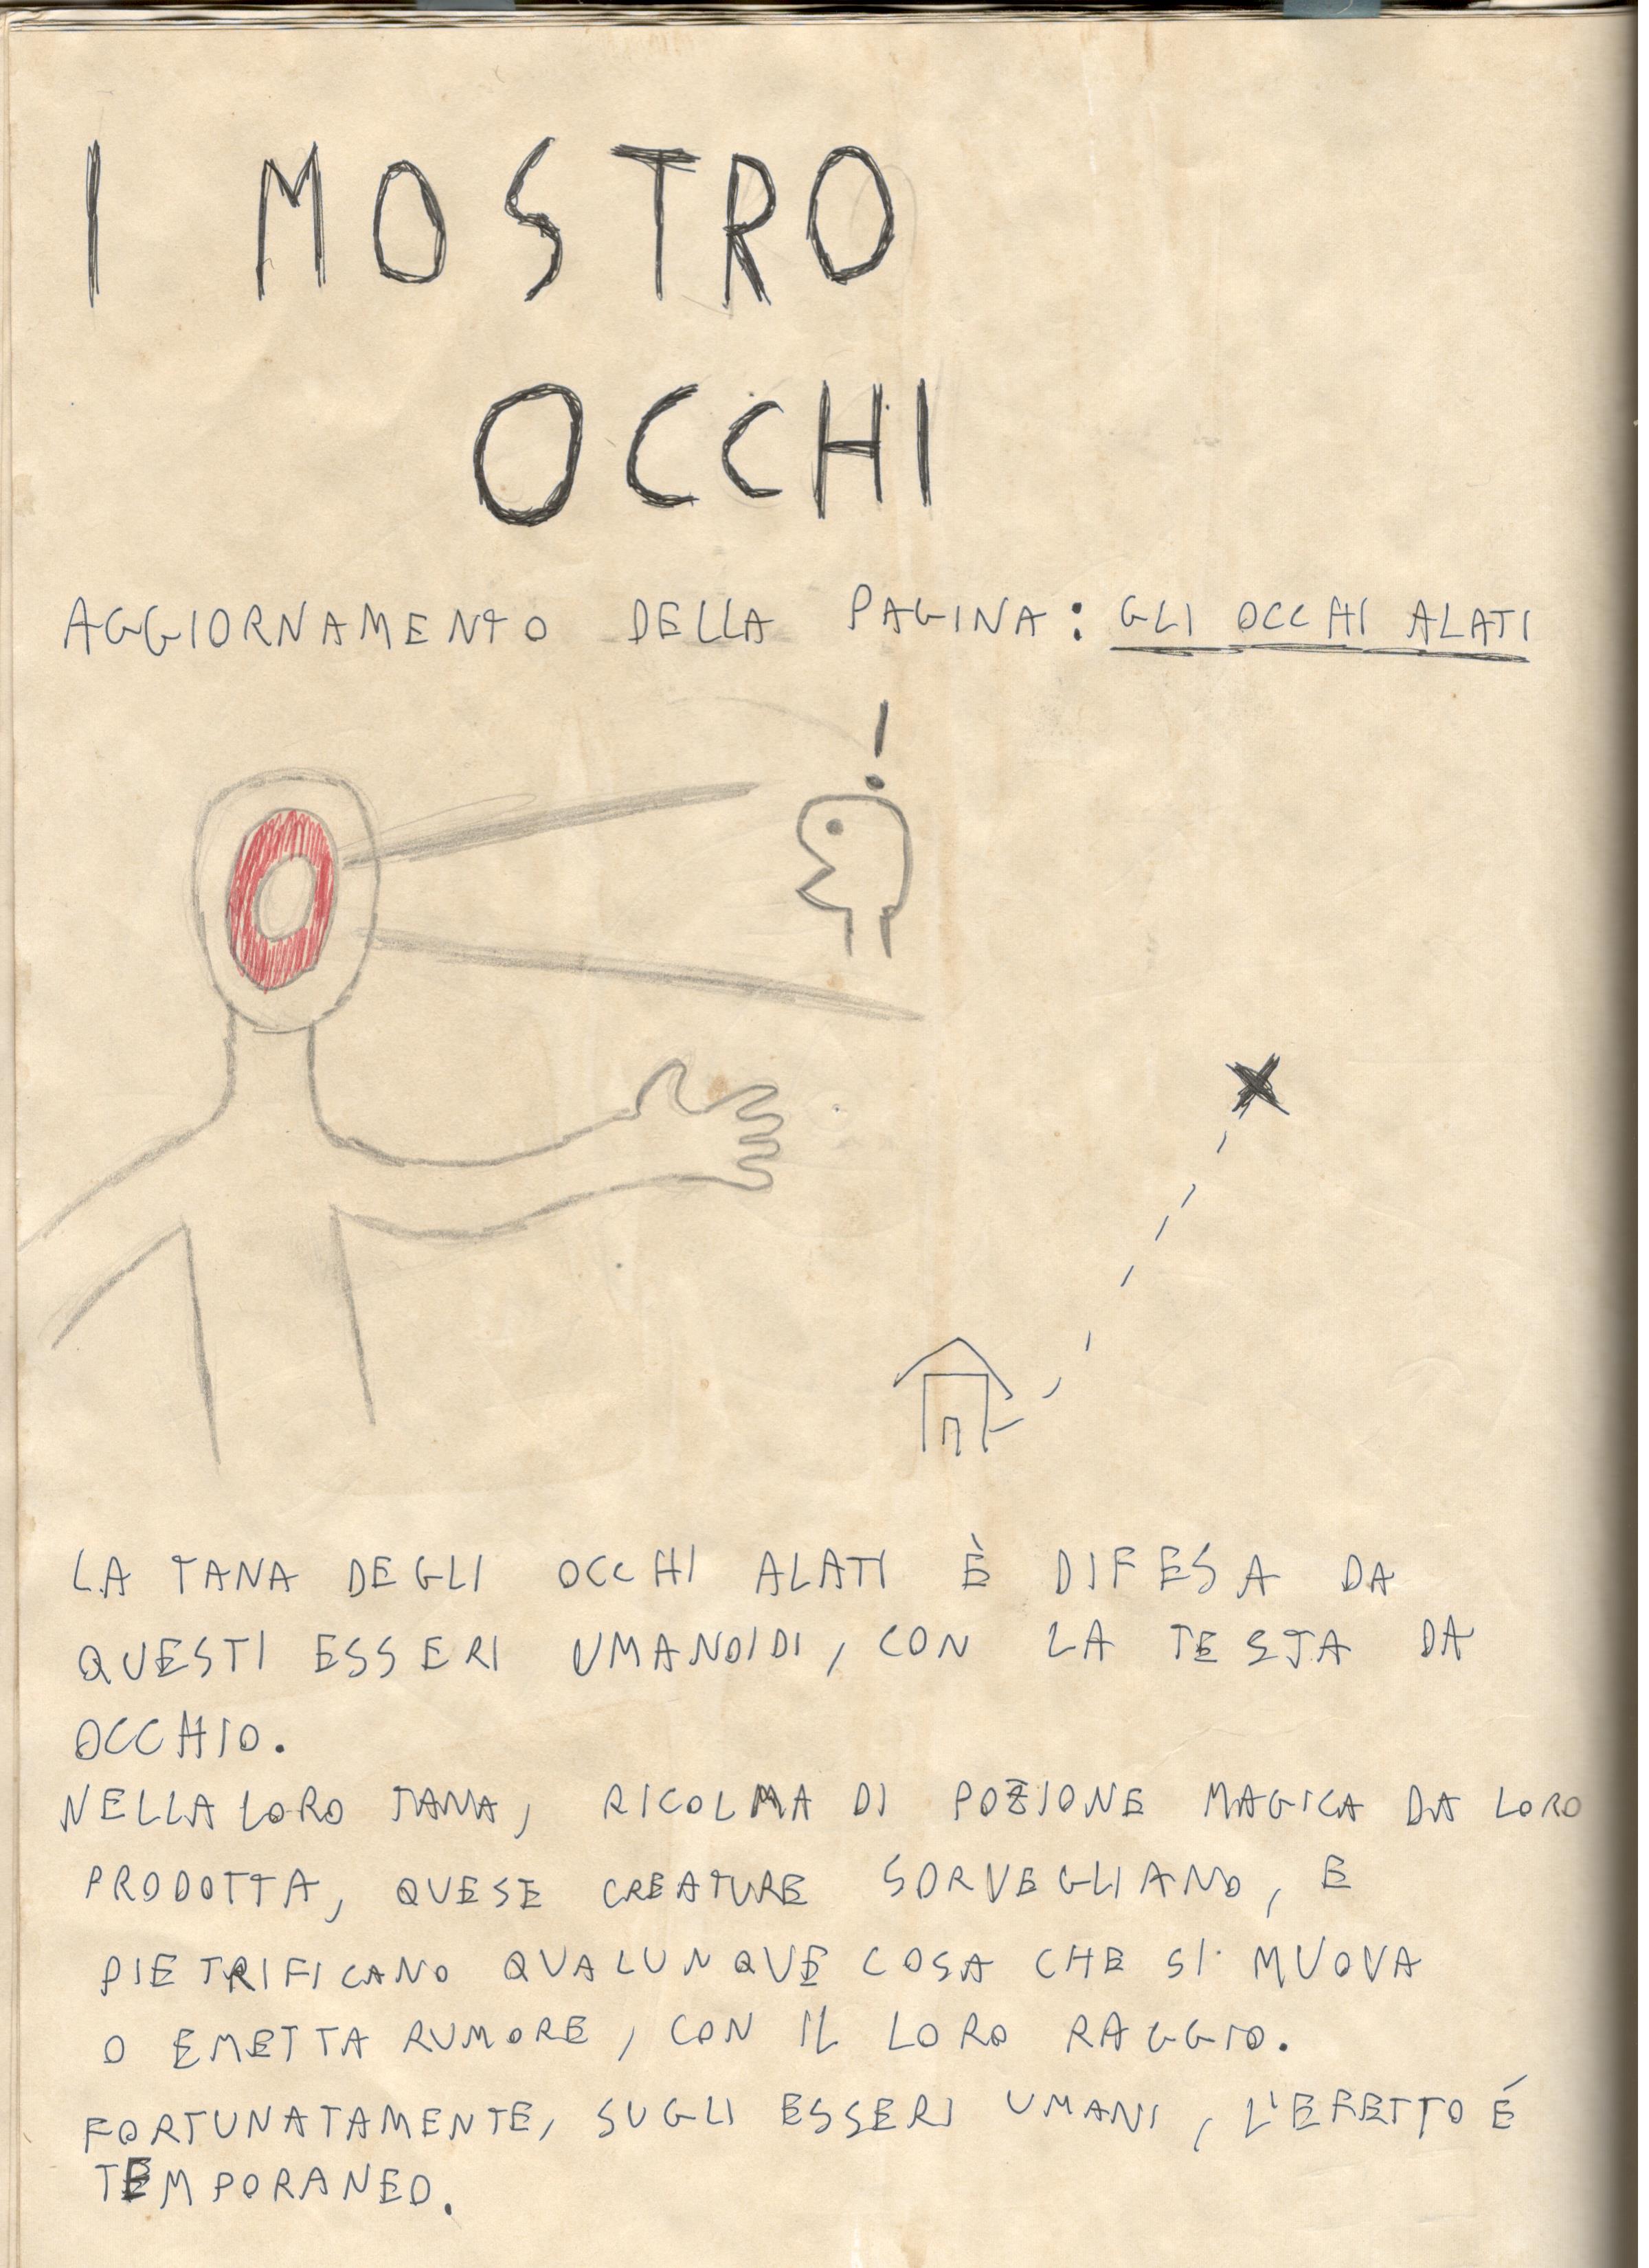 I MOSTRO
OCCHI
AGGIORNAMENTO DELLA PAGINA: GLI OCCHI ALATI
!
LA TANA DEGLI OCCHI ALATI È DIFESA DA
QUESTI ESSERI UMANOIDI, CON LA TESTA DA
OCCHIO.
NELLA LORO TANA, RICOLMA DI POZIONE MAGICA DA LORO
PRODOTTA, QUESE CREATURE SORVEGLIANO, E
PIETRIFICANO QUALUNQUE COSA CHE SI MUOVA
O EMETTA RUMORE, CON IL LORO RAGGIO.
FORTUNATAMENTE, SUGLI ESSERI UMANI, L'EFETTO É
TEMPORANEO.